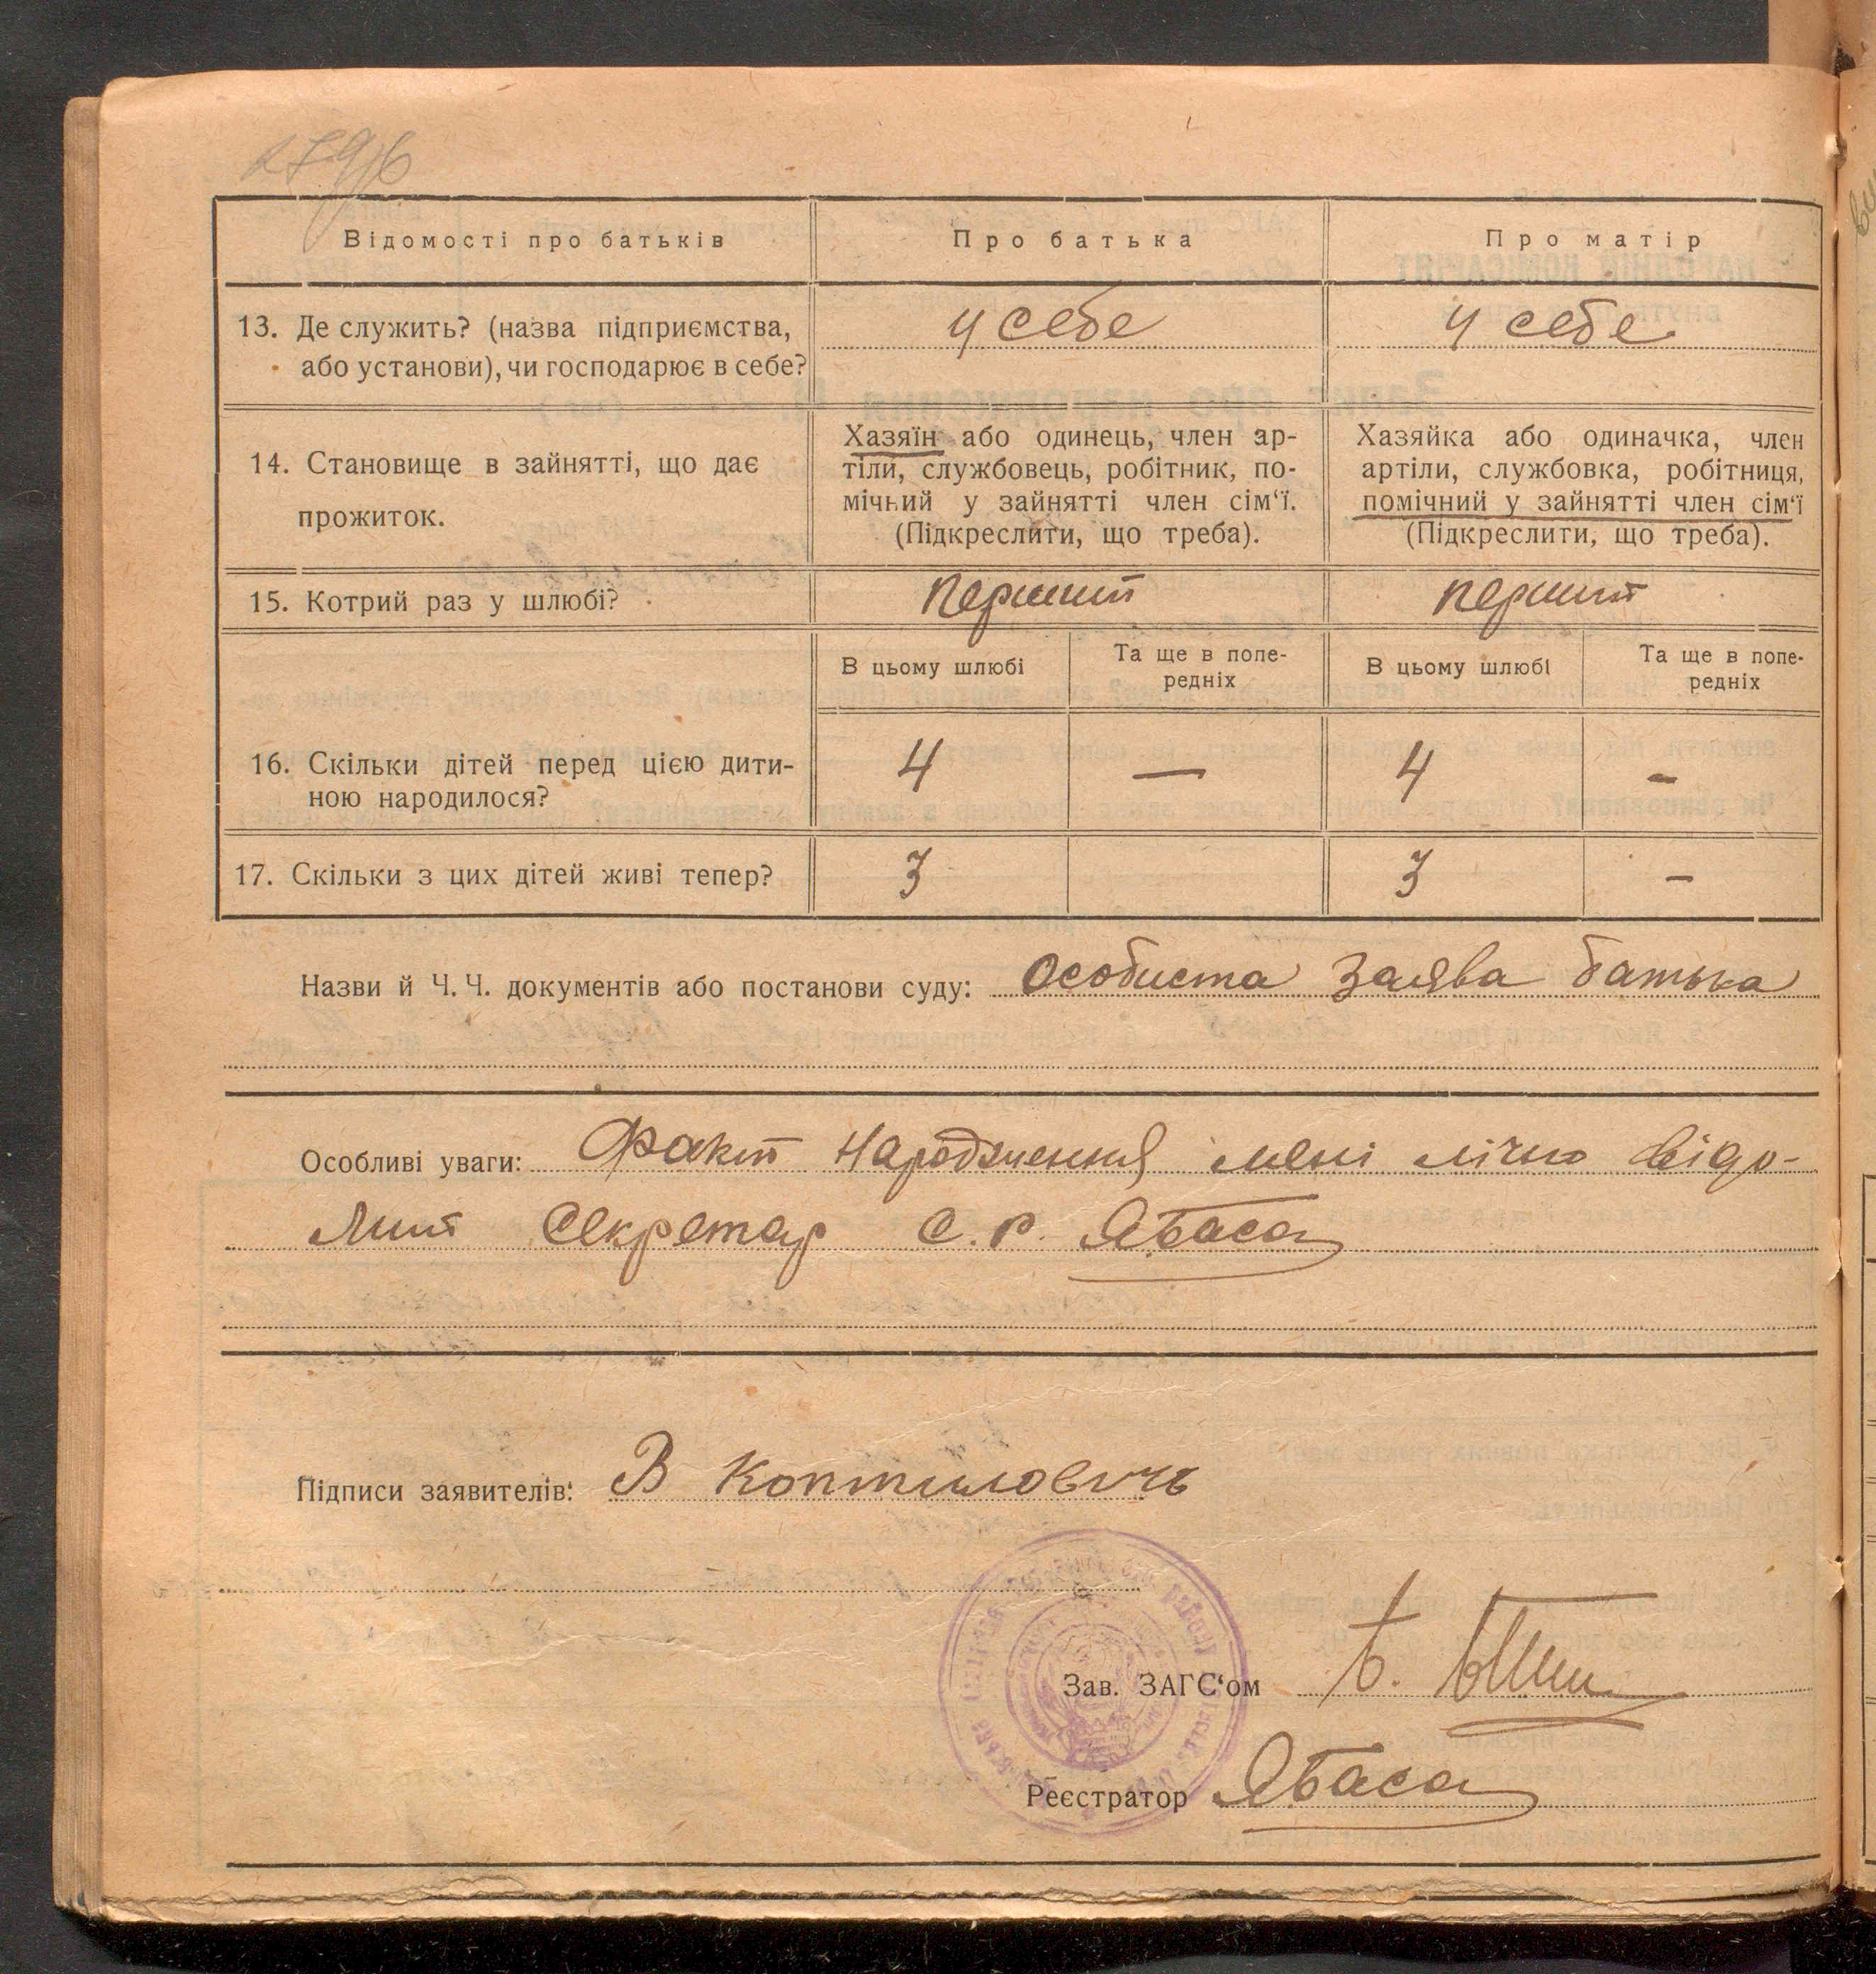 Відомості про батьків
Про батька
Про матір
13. Де служить? (назва підприємства,
або установи), чи господарює в себе?
у себе
у себе
14. Становище в зайнятті, що дає
прожиток.
Хазяїн або одинець, член ар-
тіли, службовець, робітник, по-
мічний у зайнятті член сім‘ї.
(Підкреслити, що треба).
Хазяйка або одиначка, член
артіли, службовка, робітниця,
помічний у зайнятті член сім‘ї
(Підкреслити, що треба).
15. Котрий раз у шлюбі?
перший
перший
В цьому шлюбі
Та ще в попе-
редніх
В цьому шлюбі
Та ще в попе-
редніх
16. Скільки дітей перед цією дити-
ною народилося?
4
—
4
-
17. Скільки з цих дітей живі тепер?
3
3
-
Назви й Ч. Ч. документів або постанови суду: Особиста заява батька
Особливі уваги: Факт народження мені лічно відо-
мий Секретар С. Р. ЯБаса
Підписи заявителів: В Коптиловичь
Зав. ЗАГС‘ом
Реєстратор ЯБаса